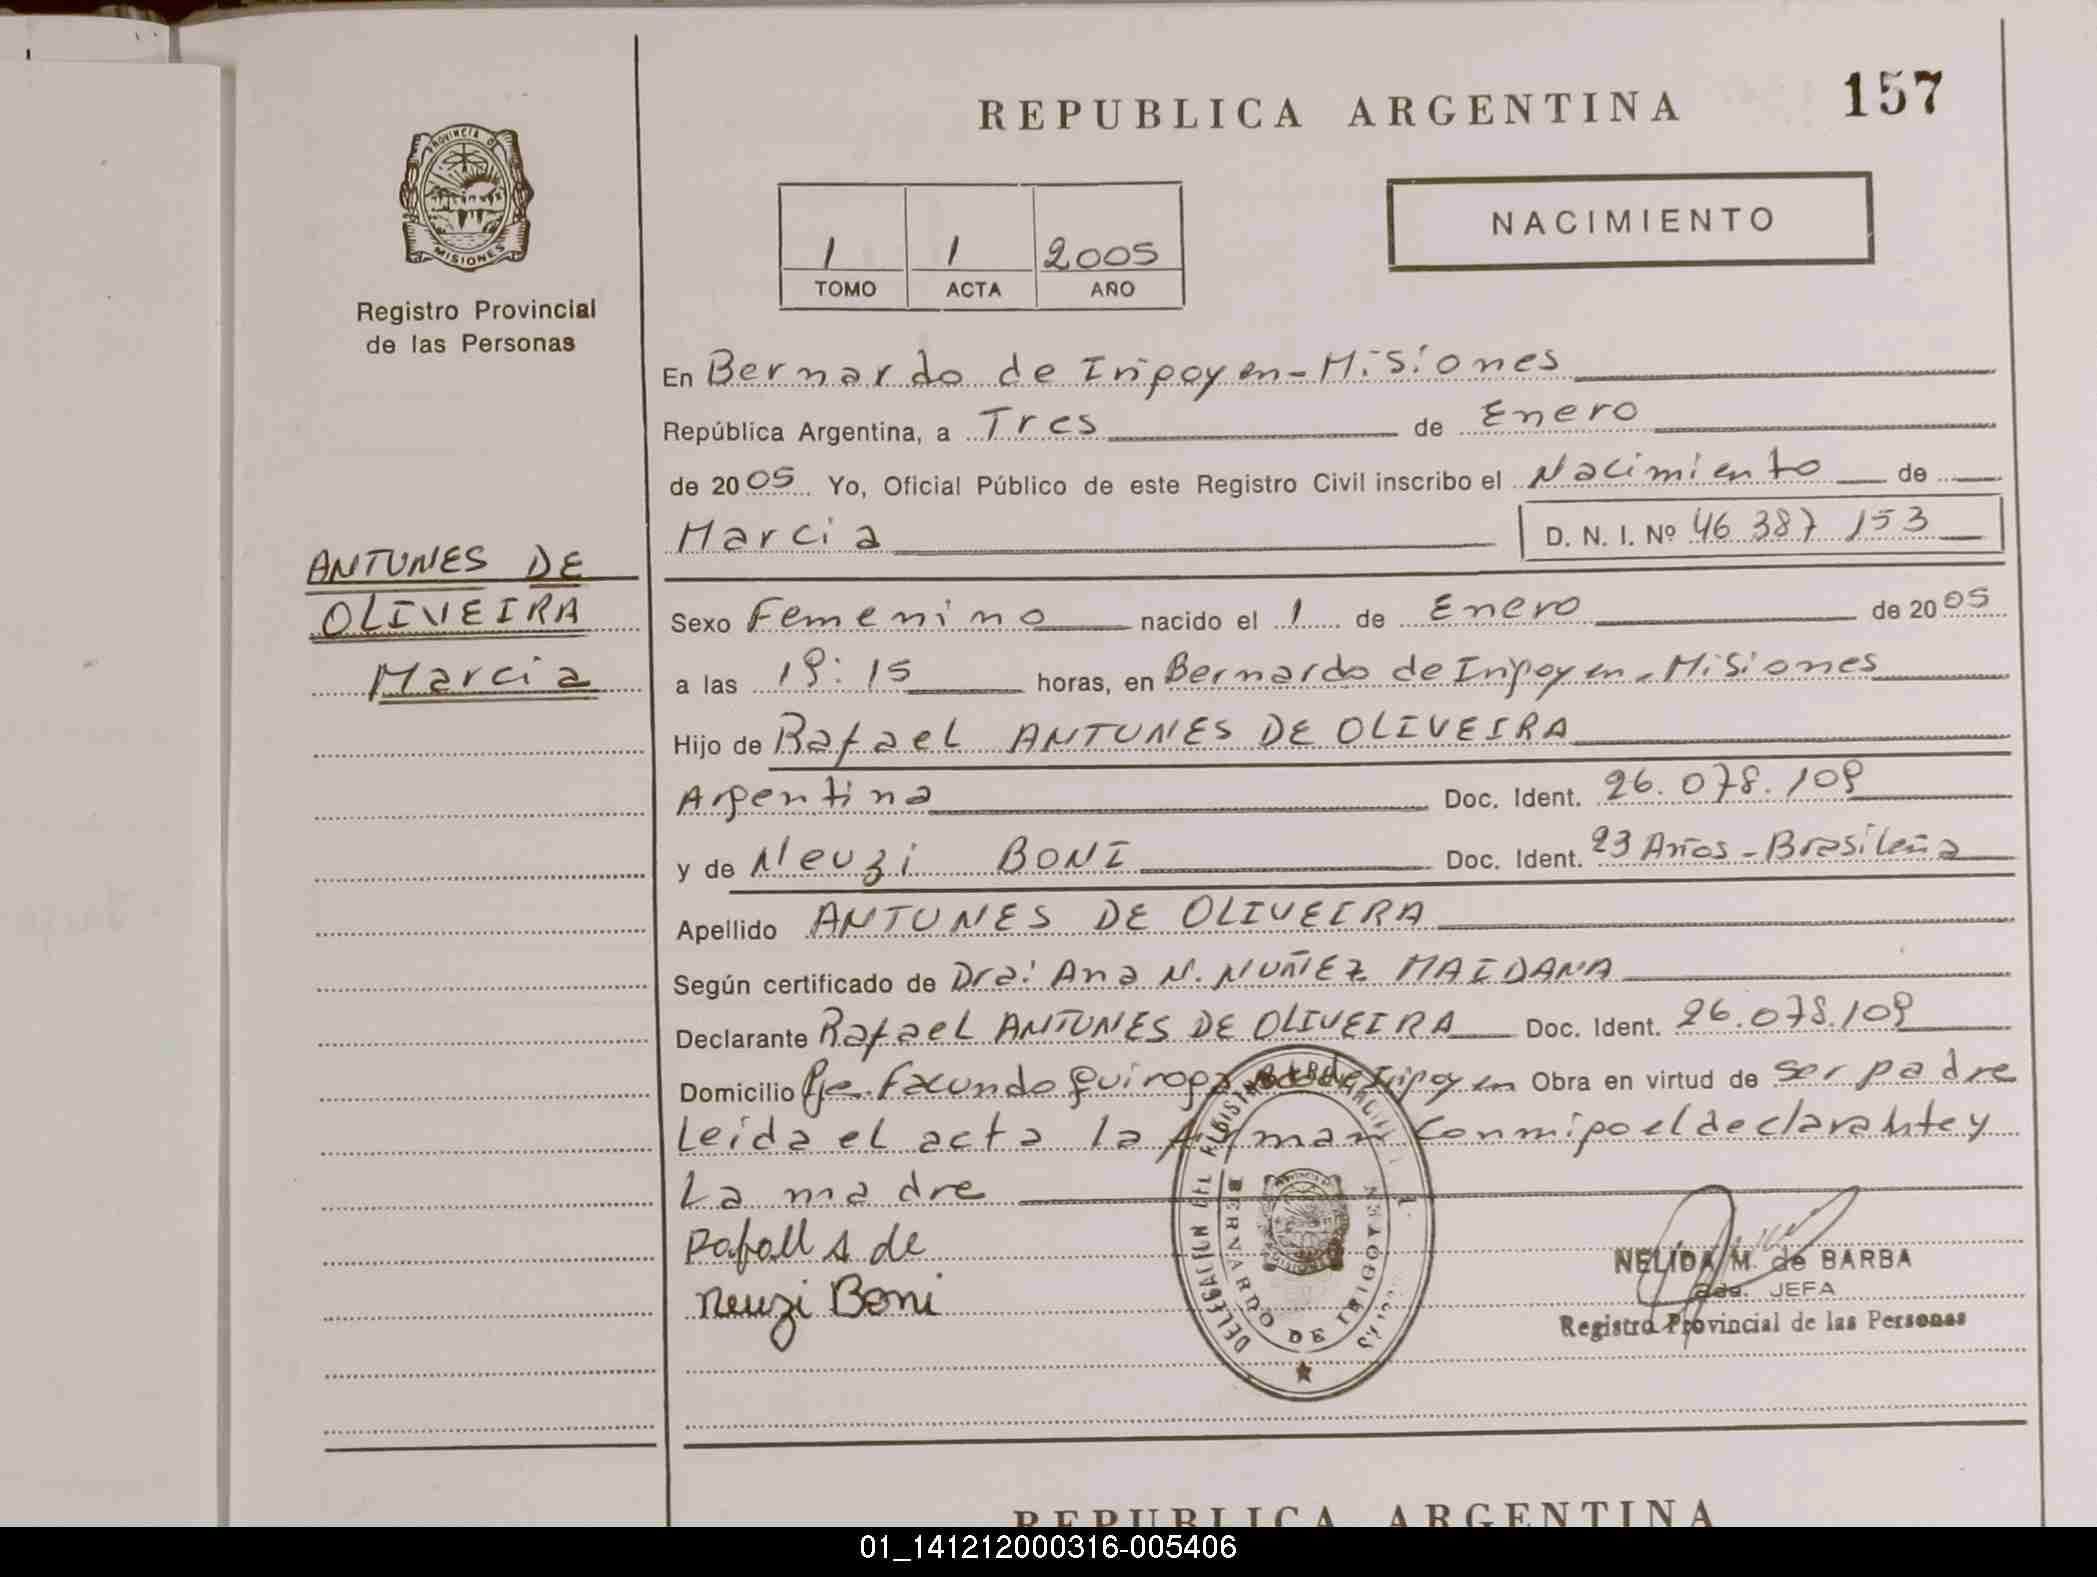 REPUBLICA ARGENTINA
157
PROVINCIA DE
MISIONES
Registro Provincial
de las Personas
1 1 2005
TOMO ACTA AÑO
NACIMIENTO
ANTUNES DE
OLIVEIRA
Marcia
En Bernardo de Irigoyen - Misiones
República Argentina, a Tres de Enero
de 2005 Yo, Oficial Público de este Registro Civil inscribo el Nacimiento de
Marcia D. N. I. Nº 46 387 153
Sexo Femenino nacido el 1 de Enero de 2005
a las 19:15 horas, en Bernardo de Irigoyen - Misiones
Hijo de Rafael ANTUNES DE OLIVEIRA
Argentina Doc. Ident. 26.078.109
y de Neuzi BONI Doc. Ident. 23 Años - Brasileña
Apellido ANTUNES DE OLIVEIRA
Según certificado de Dra: Ana N. NUÑEZ MAIDANA
Declarante Rafael ANTUNES DE OLIVEIRA Doc. Ident. 26.078.109
Domicilio Pje. Facundo Quiroga Bdo de Irigoyen Obra en virtud de ser padre
Leida el acta la firman conmigo el declarante y
La madre
Rafaell A de
Neuzi Boni
DELEGACION DEL REGISTRO PROVINCIAL
BERNARDO DE IRIGOYEN
NELIDA M. de BARBA
JEFA
Registro Provincial de las Personas
REPUBLICA ARGENTINA
01_141212000316-005406